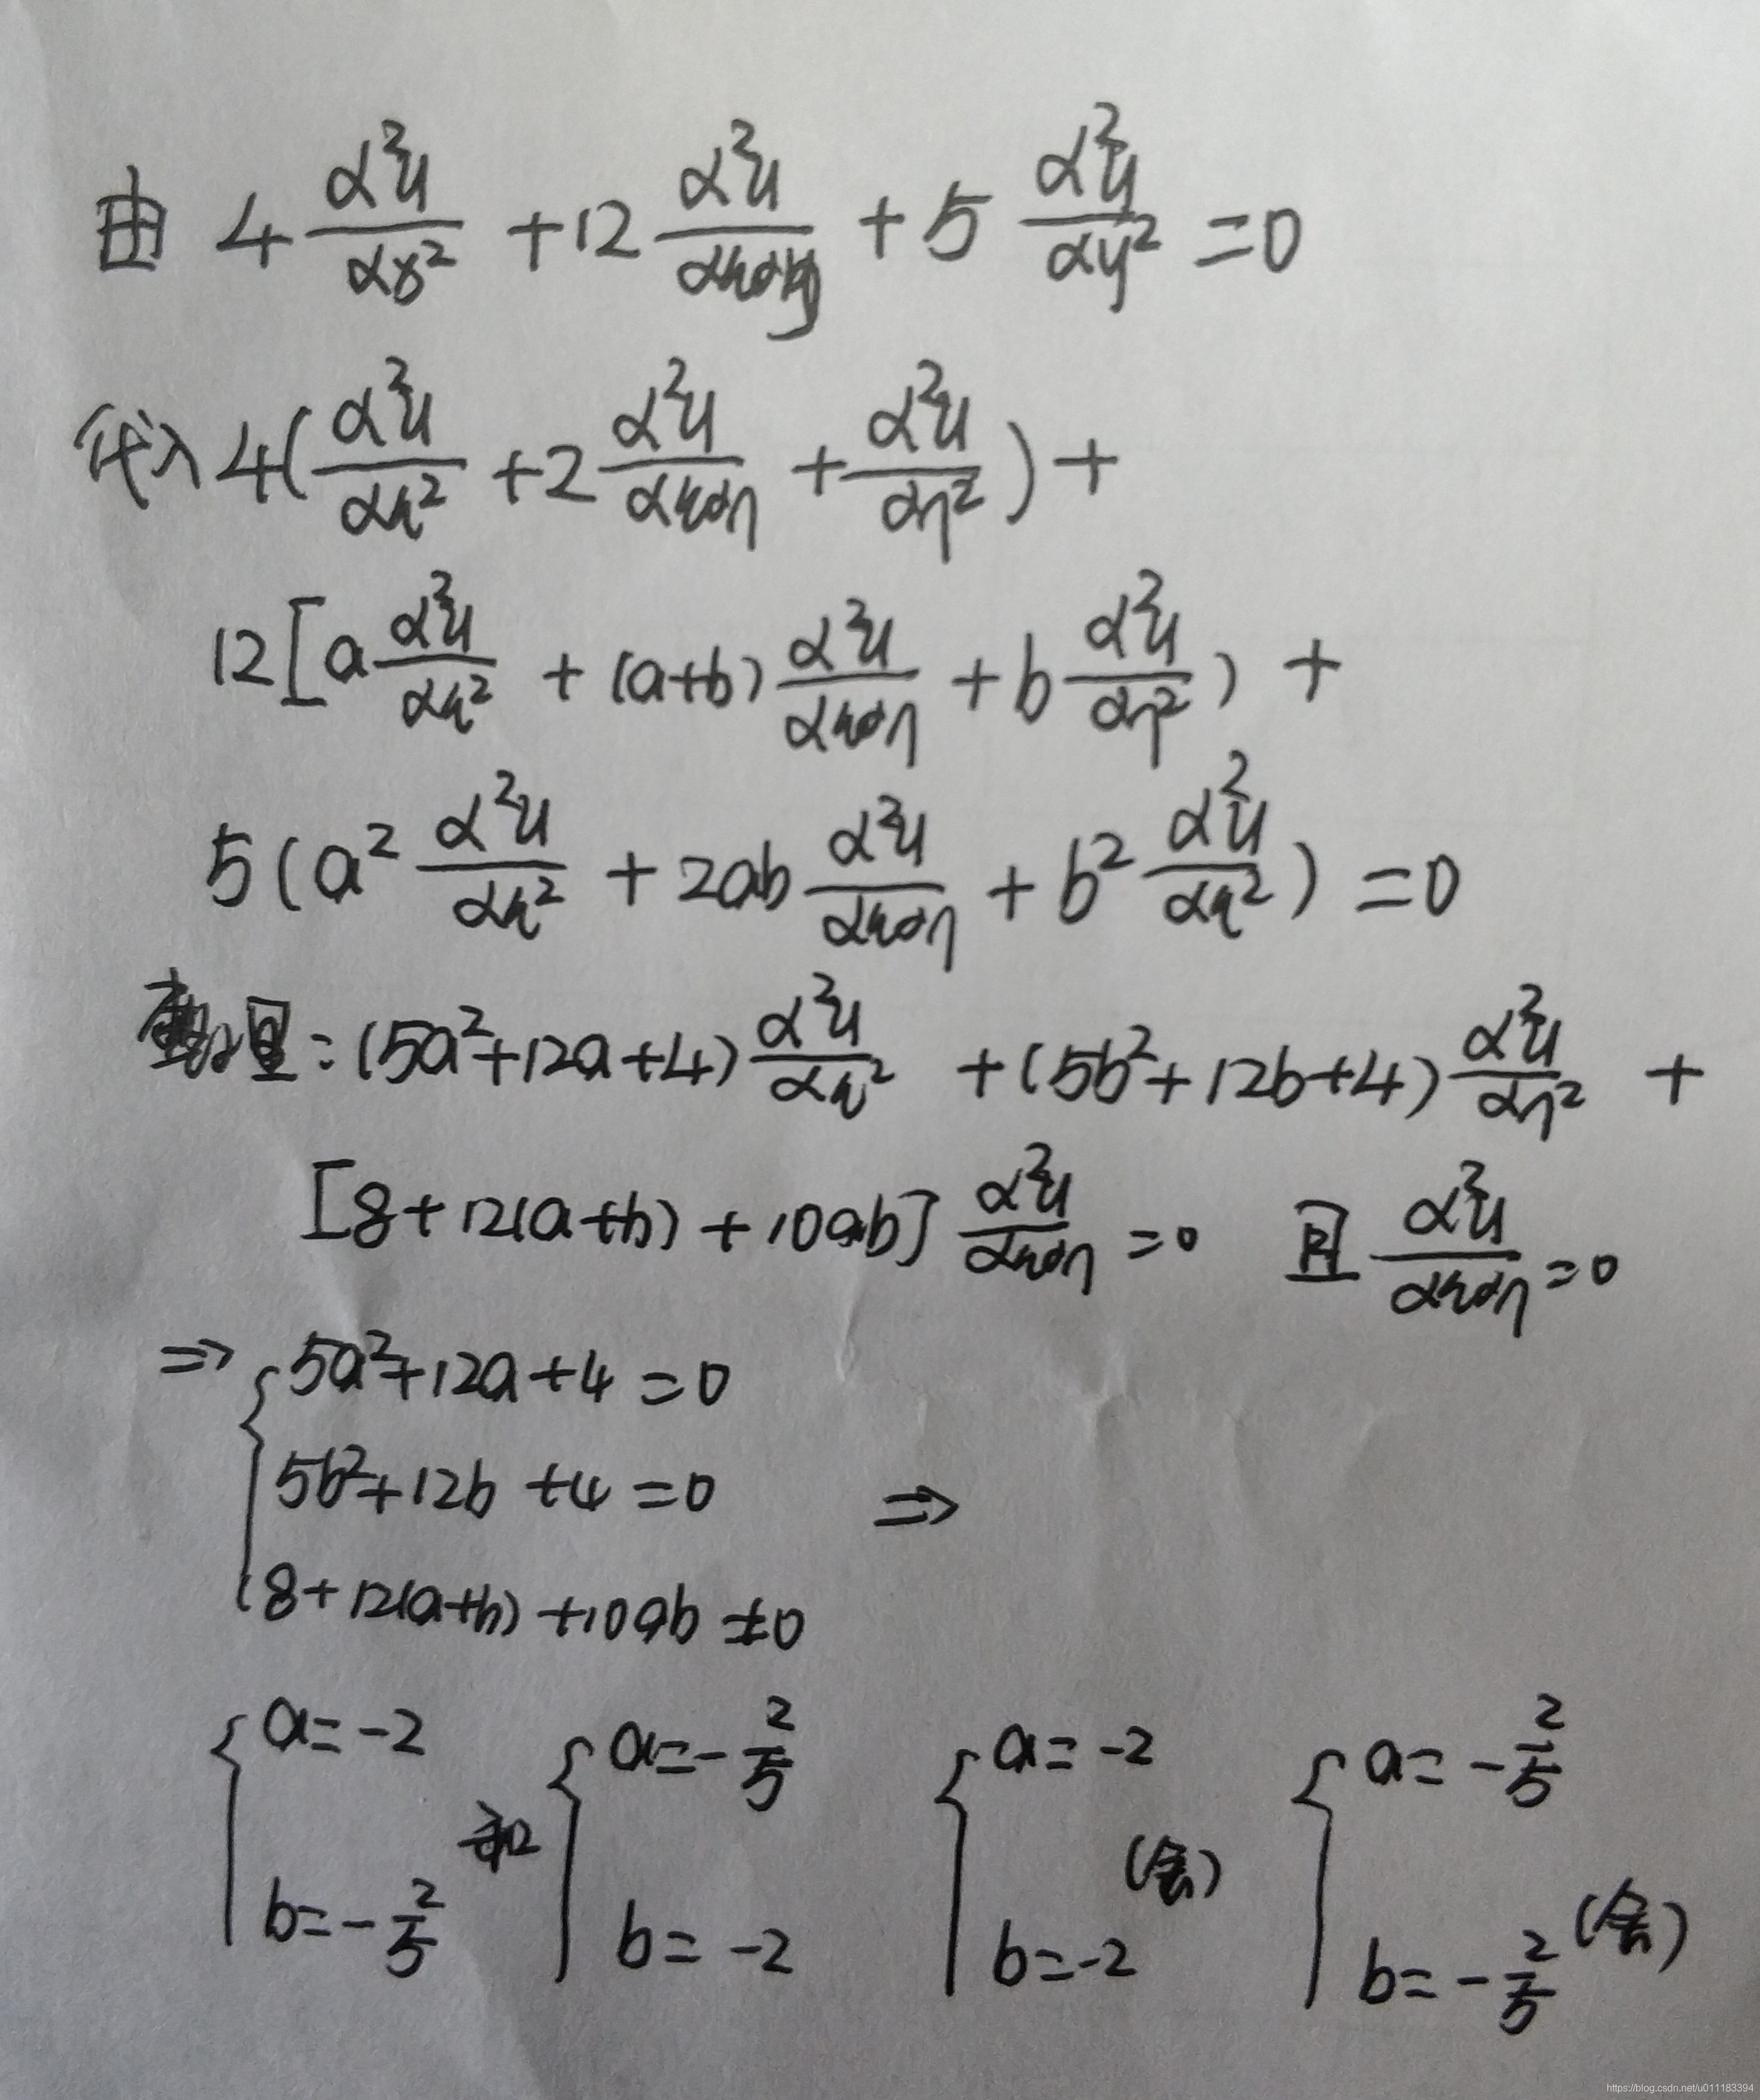 由 4 ∂²u/∂x² + 12 ∂²u/∂x∂y + 5 ∂²u/∂y² = 0
代入 4(∂²u/∂ξ² + 2 ∂²u/∂ξ∂η + ∂²u/∂η²) +
12[a ∂²u/∂ξ² + (a+b) ∂²u/∂ξ∂η + b ∂²u/∂η²) +
5(a² ∂²u/∂ξ² + 2ab ∂²u/∂ξ∂η + b² ∂²u/∂ξ²) = 0
整理:(5a²+12a+4) ∂²u/∂ξ² + (5b²+12b+4) ∂²u/∂η² +
[8+12(a+b)+10ab] ∂²u/∂ξ∂η = 0 且 ∂²u/∂ξ∂η = 0
⇒ { 5a²+12a+4=0
5b²+12b+4=0 ⇒
8+12(a+b)+10ab≠0
{ a=-2 b=-2/5 和 { a=-2/5 b=-2 { a=-2 b=-2 (舍) { a=-2/5 b=-2/5 (舍)
https://blog.csdn.net/u011183394